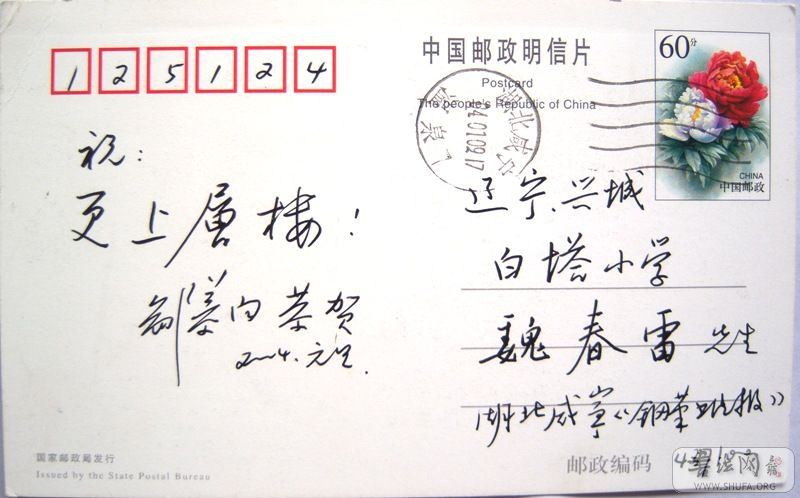 125124
中国邮政明信片
Postcard
The people's Republic of China
60分
CHINA
中国邮政
湖北咸宁
2004.01.09.17
温泉
祝：
更上层楼！
邹慕白 恭贺
2004.元旦
辽宁、兴城
白塔小学
魏春雷 先生
湖北咸宁《钢笔书法报》
国家邮政局发行
Issued by the State Postal Bureau
邮政编码
书法网
WWW.SHUFA.ORG